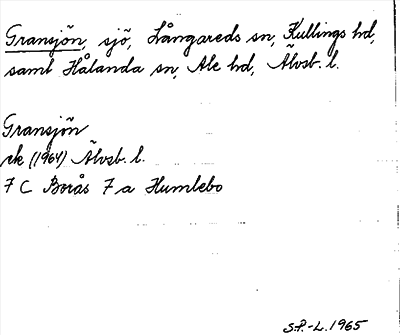 Gransjön, sjö, Långareds sn, Kullings hd,
saml Hålanda sn, Ale hd, Älvsb. l.
Gransjön
rk (1964) Älvsb. l.
7 C Borås 7 a Humlebo
S.P.-L. 1965